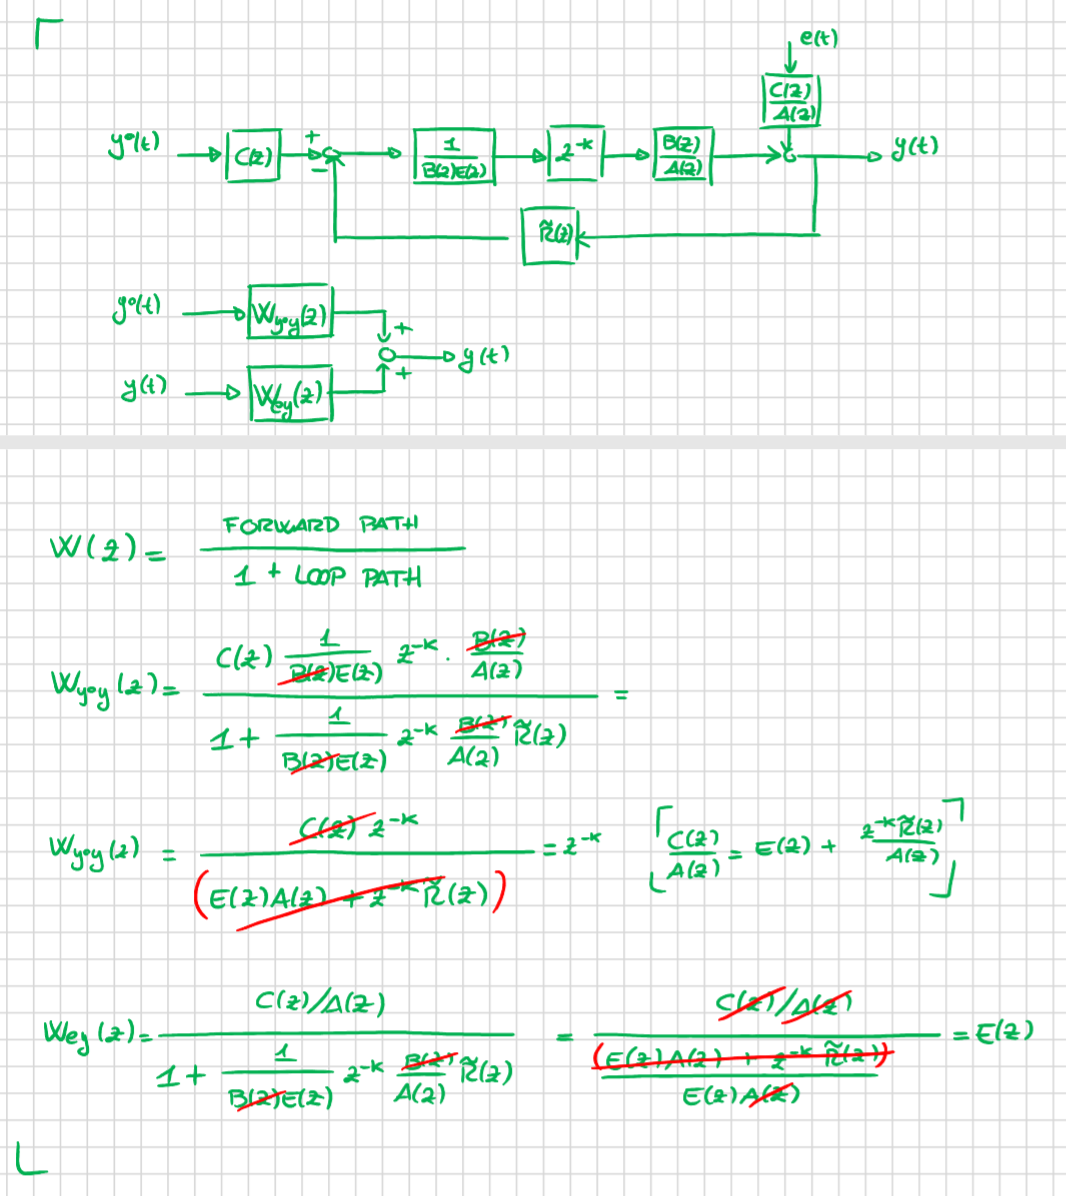 e(t)
C(z)/A(z)
y°(t) C(z) + − 1/(B(z)E(z)) z^-k B(z)/A(z) y(t)
R̃(z)
y°(t) W_y°y(z) +
y(t)
y(t) W_ey(z) +
W(z) = FORWARD PATH / (1 + LOOP PATH)
W_y°y(z) = (C(z) 1/(B(z)E(z)) z^-k · B(z)/A(z)) / (1 + 1/(B(z)E(z)) z^-k B(z)/A(z) R̃(z)) =
W_y°y(z) = C(z) z^-k / (E(z)A(z) + z^-k R̃(z)) = z^-k [C(z)/A(z) = E(z) + z^-k R̃(z)/A(z)]
W_ey(z) = (C(z)/A(z)) / (1 + 1/(B(z)E(z)) z^-k B(z)/A(z) R̃(z)) = (C(z)/A(z)) / ((E(z)A(z) + z^-k R̃(z)) / E(z)A(z)) = E(z)